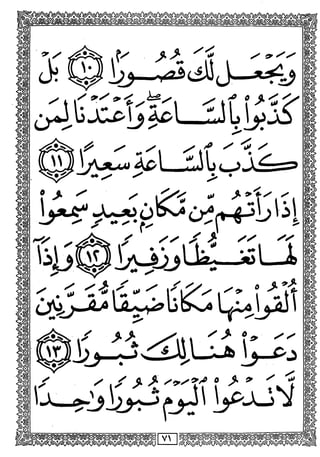 وَيَجْعَل لَّكَ قُصُورًا ١٠ بَلْ
كَذَّبُوا۟ بِٱلسَّاعَةِ ۖ وَأَعْتَدْنَا لِمَن
كَذَّبَ بِٱلسَّاعَةِ سَعِيرًا ١١
إِذَا رَأَتْهُم مِّن مَّكَانٍۭ بَعِيدٍ سَمِعُوا۟
لَهَا تَغَيُّظًا وَزَفِيرًا ١٢ وَإِذَآ
أُلْقُوا۟ مِنْهَا مَكَانًا ضَيِّقًا مُّقَرَّنِينَ
دَعَوْا۟ هُنَالِكَ ثُبُورًا ١٣
لَّا تَدْعُوا۟ ٱلْيَوْمَ ثُبُورًا وَٰحِدًا
٧١